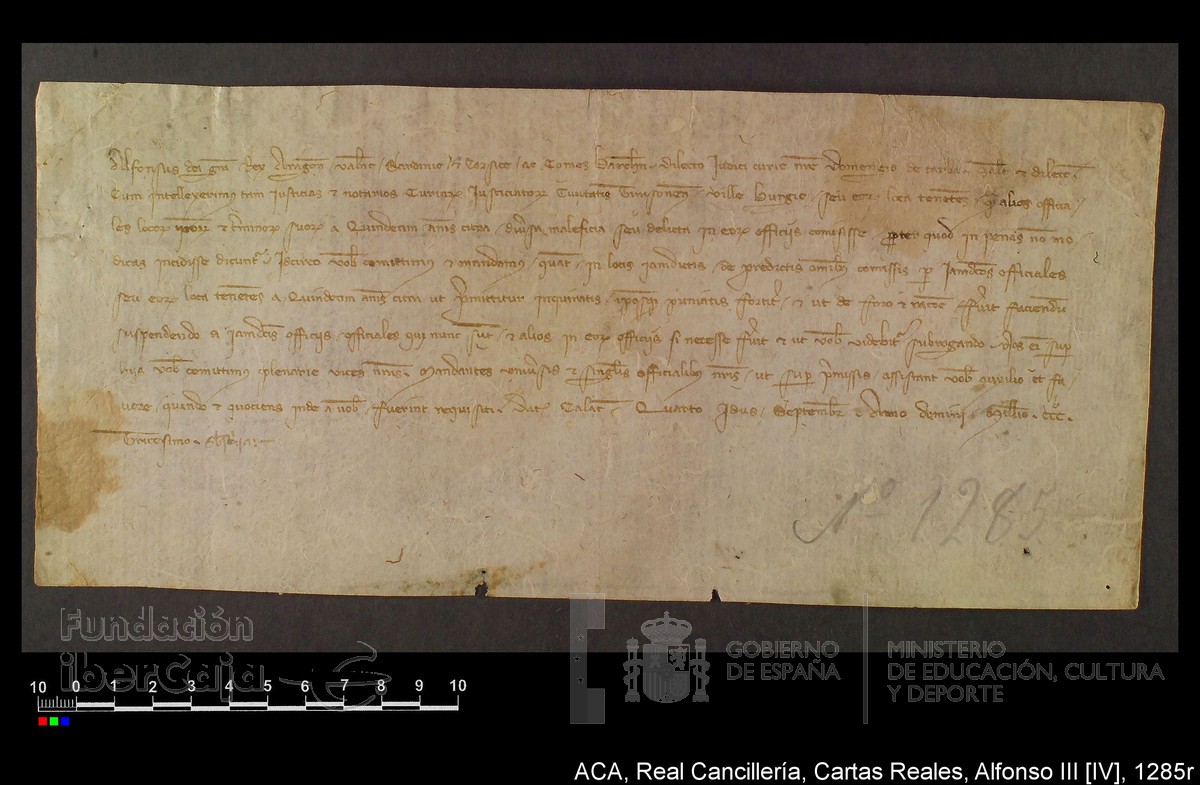 Alfonsus dei gra Rex Aragon Valenc Sardinie et Corsice ac Comes Barchn dilecto Judici curie nre Domengio de Tarba salt et dilecc
Cum intellexerimus tam Justicias et notarios Curiarz Justiciatorz Civitatis ville Burgie seu eorz loca tenetes q alios officia
les locorz iporz et terminorz suorz a Quindecim annis citra diversa maleficia seu delicta in eorz officijs comisisse propter quod in penas non mo
dicas incidisse dicunt Idcirco vob comittimus et mandamus quat in locis iamdictis de predictis omibus comissis per Iamdcos officiales
seu eorz loca tenetes a Quindecim annis citra ut premittitur inquiratis iposqz puniatis fortit et ut de foro et racoe fuerit faciendu
suspendendo a iamdcis officijs officiales qui nunc sut et alios in eorz officijs si necesse fuerit et ut vob videbit subrogando Nos ei sup
hija vob comittimus plenarie vices nras Mandantes universis et singlis officialibus nris ut sup premissis assistant vob auxilio et fa
vore quando et quociens inde a vob fuerint requisiti Dat Calat Quarto Idus Septembr Anno domini Millio CCC
Tricesimo
No 1285
Fundación
iberCaja
GOBIERNO
DE ESPAÑA
MINISTERIO
DE EDUCACIÓN, CULTURA
Y DEPORTE
10 0 1 2 3 4 5 6 7 8 9 10
ACA, Real Cancillería, Cartas Reales, Alfonso III [IV], 1285r